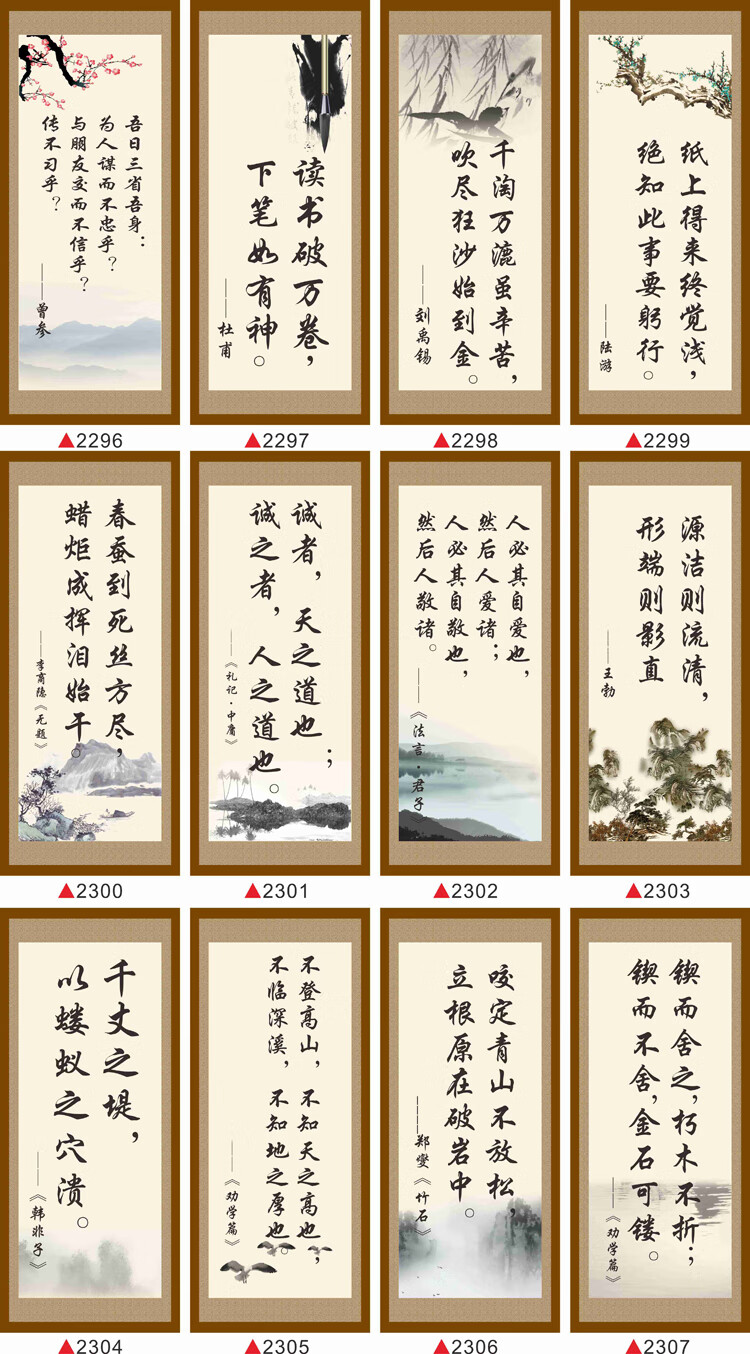 吾日三省吾身：
为人谋而不忠乎？
与朋友交而不信乎？
传不习乎？
——曾参
▲2296
读书破万卷，
下笔如有神。
——杜甫
▲2297
千淘万漉虽辛苦，
吹尽狂沙始到金。
——刘禹锡
▲2298
纸上得来终觉浅，
绝知此事要躬行。
——陆游
▲2299
春蚕到死丝方尽，
蜡炬成挥泪始干。
——李商隐《无题》
▲2300
诚者，天之道也；
诚之者，人之道也。
——《礼记·中庸》
▲2301
人必其自爱也，
然后人爱诸；
人必其自敬也，
然后人敬诸。
——《法言·君子
▲2302
源洁则流清，
形端则影直
——王勃
▲2303
千丈之堤，
以蝼蚁之穴溃。
——《韩非子》
▲2304
不登高山，不知天之高也；
不临深溪，不知地之厚也。
——《劝学篇》
▲2305
咬定青山不放松，
立根原在破岩中。
————郑燮《竹石》
▲2306
锲而舍之，朽木不折；
锲而不舍，金石可镂。
——《劝学篇》
▲2307